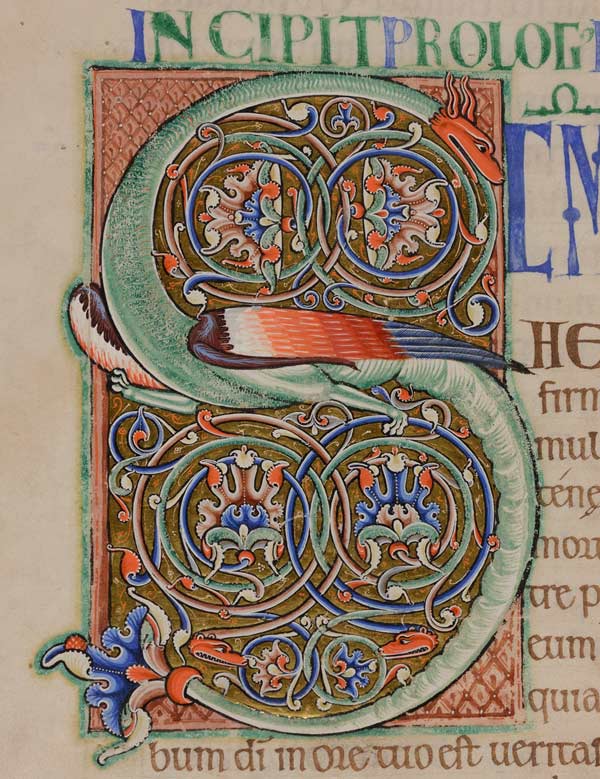 INCIPIT PROLOG'
SEM
HE
firm
mul
ténę
mor
tre p
eum
quia
bum di in ore tuo est ueritas